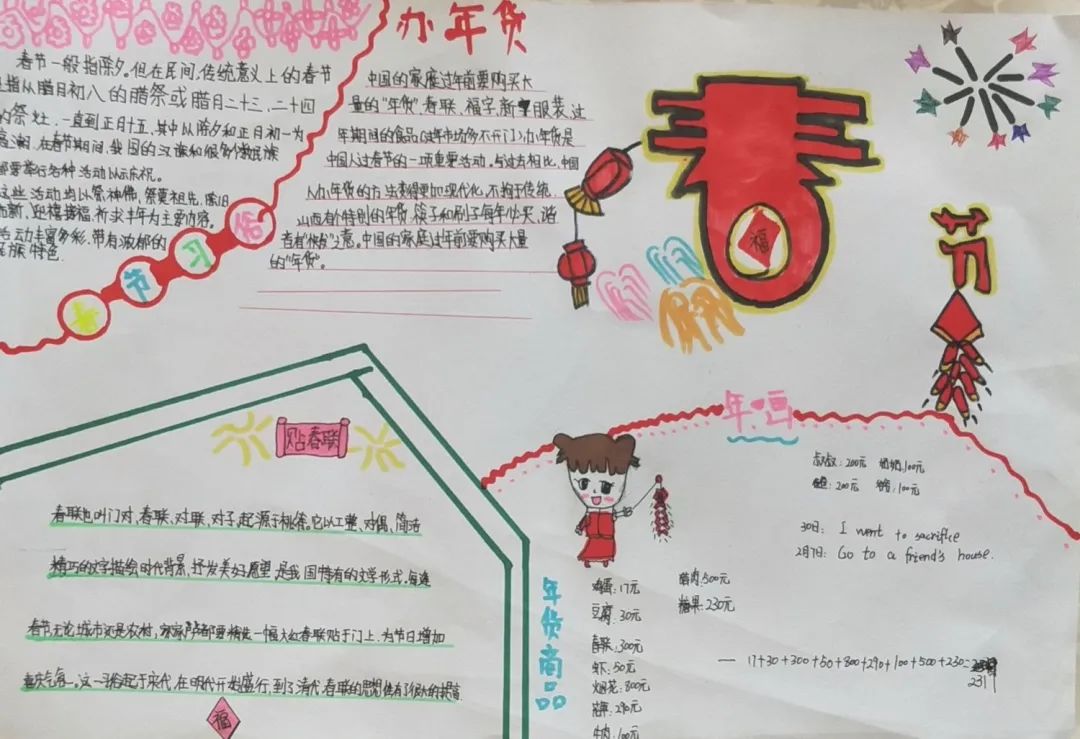 办年货
春节一般指除夕。但在民间，传统意义上的春节
指从腊月初八的腊祭或腊月二十三、二十四
的祭灶，一直到正月十五，其中以除夕和正月初一为
高潮，在春节期间，我国的汉族和很多少数民族
都要举行各种活动以示庆祝。
这些活动均以祭神佛，祭奠祖先，除旧
布新，迎禧接福，祈求丰年为主要内容。
活动丰富多彩，带有浓郁的
民族特色。
春节习俗
中国的家庭过年前要购买大
量的“年货”春联、福字、新服装、过
年期间的食品（过年市场多不开门）办年货是
中国人过春节的一项重要活动。与过去相比，中国
人办年货的方法变得更加现代化，不拘于传统，
山西有个特别的年货，筷子和刷子每年必买，谐
音有“快发”之意。中国的家庭过年前要购买大量
的“年货”。
春
福
节
贴春联
春联也叫门对、春联、对联、对子，起源于桃符。它以工整、对偶、简洁
精巧的文字描绘时代背景，抒发美好愿望，是我国特有的文学形式。每逢
春节，无论城市还是农村，家家户户都要精选一幅大红春联贴于门上，为节日增加
喜庆气氛。这一习俗起于宋代，在明代开始盛行，到了清代春联的思想
福
年画
叔叔：200元 奶奶：100元
200元 100元
30日： I went to sacrifice
2月1日： Go to a friend's house.
年货商品
鸡蛋：17元 腊肉：500元
豆腐：30元 糖果：230元
春联：300元
虾：50元
烟花：800元
290元
牛肉：100元
— 17+30+300+50+800+290+100+500+230=
2317